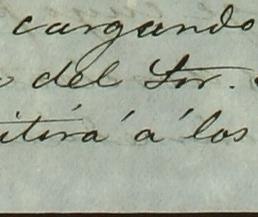 cargando
del Sor.
itirá á los